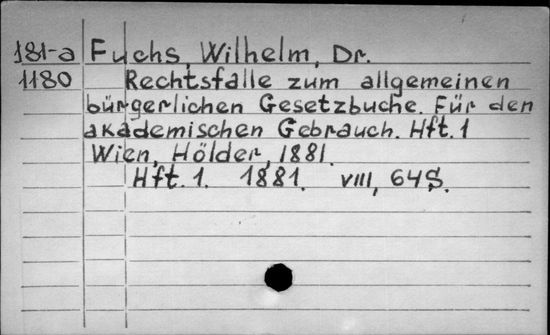 181-a Fuchs, Wilhelm, Dr.
1180 Rechtsfälle zum allgemeinen
bürgerlichen Gesetzbuche. Für den
akademischen Gebrauch. Hft. 1
Wien, Hölder, 1881.
Hft. 1. 1881. VIII, 64 S.